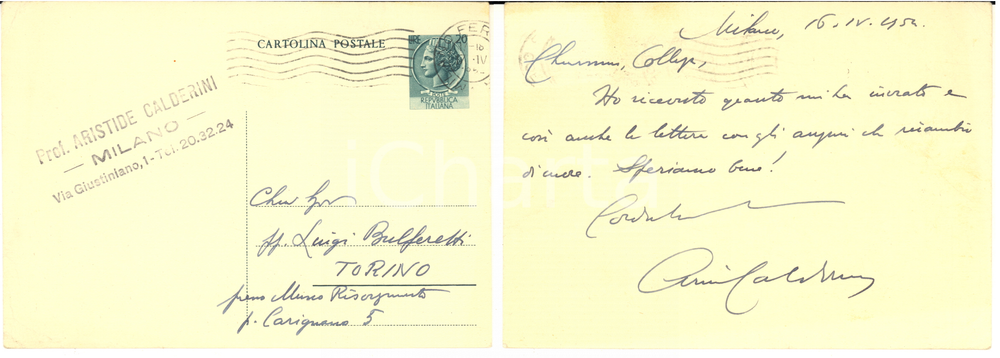 CARTOLINA POSTALE
LIRE 20
POSTE
REPVBBLICA
ITALIANA
Prof. ARISTIDE CALDERINI
— MILANO —
Via Giustiniano, 1 - Tel. 20.32.24
pf. Luigi Bulferetti
TORINO
presso Museo Risorgimento
p. Carignano 5
Milano, 16.IV.1954
Collega,
Ho ricevuto quanto mi ha inviato e
così anche le lettere con gli auguri che ricambio
di cuore. Speriamo bene!
Calderini
iCharta